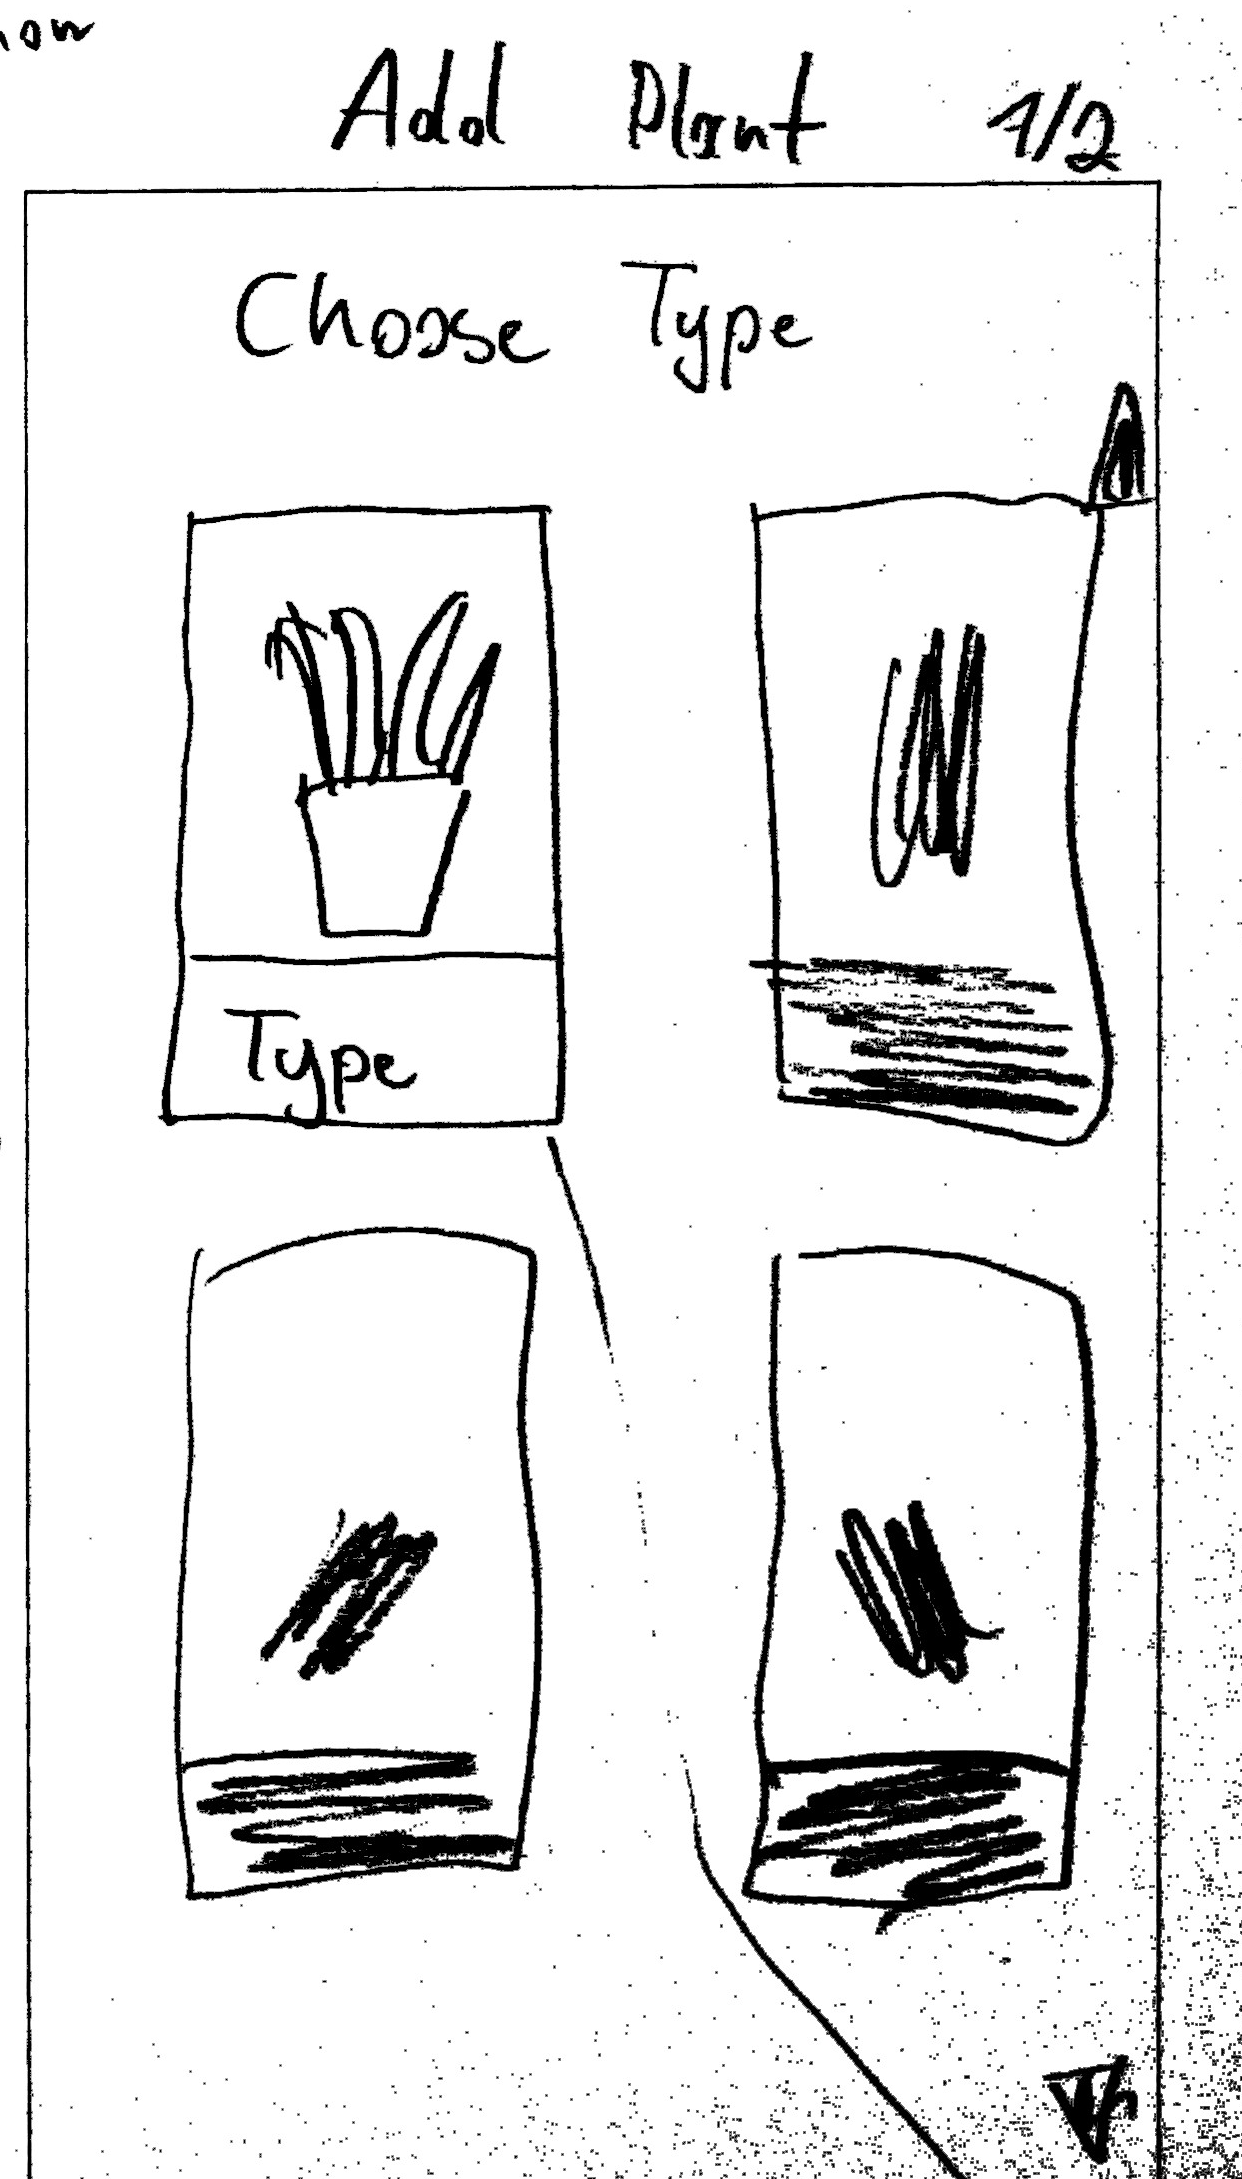 Add Plant 1/2
Choose Type
Type